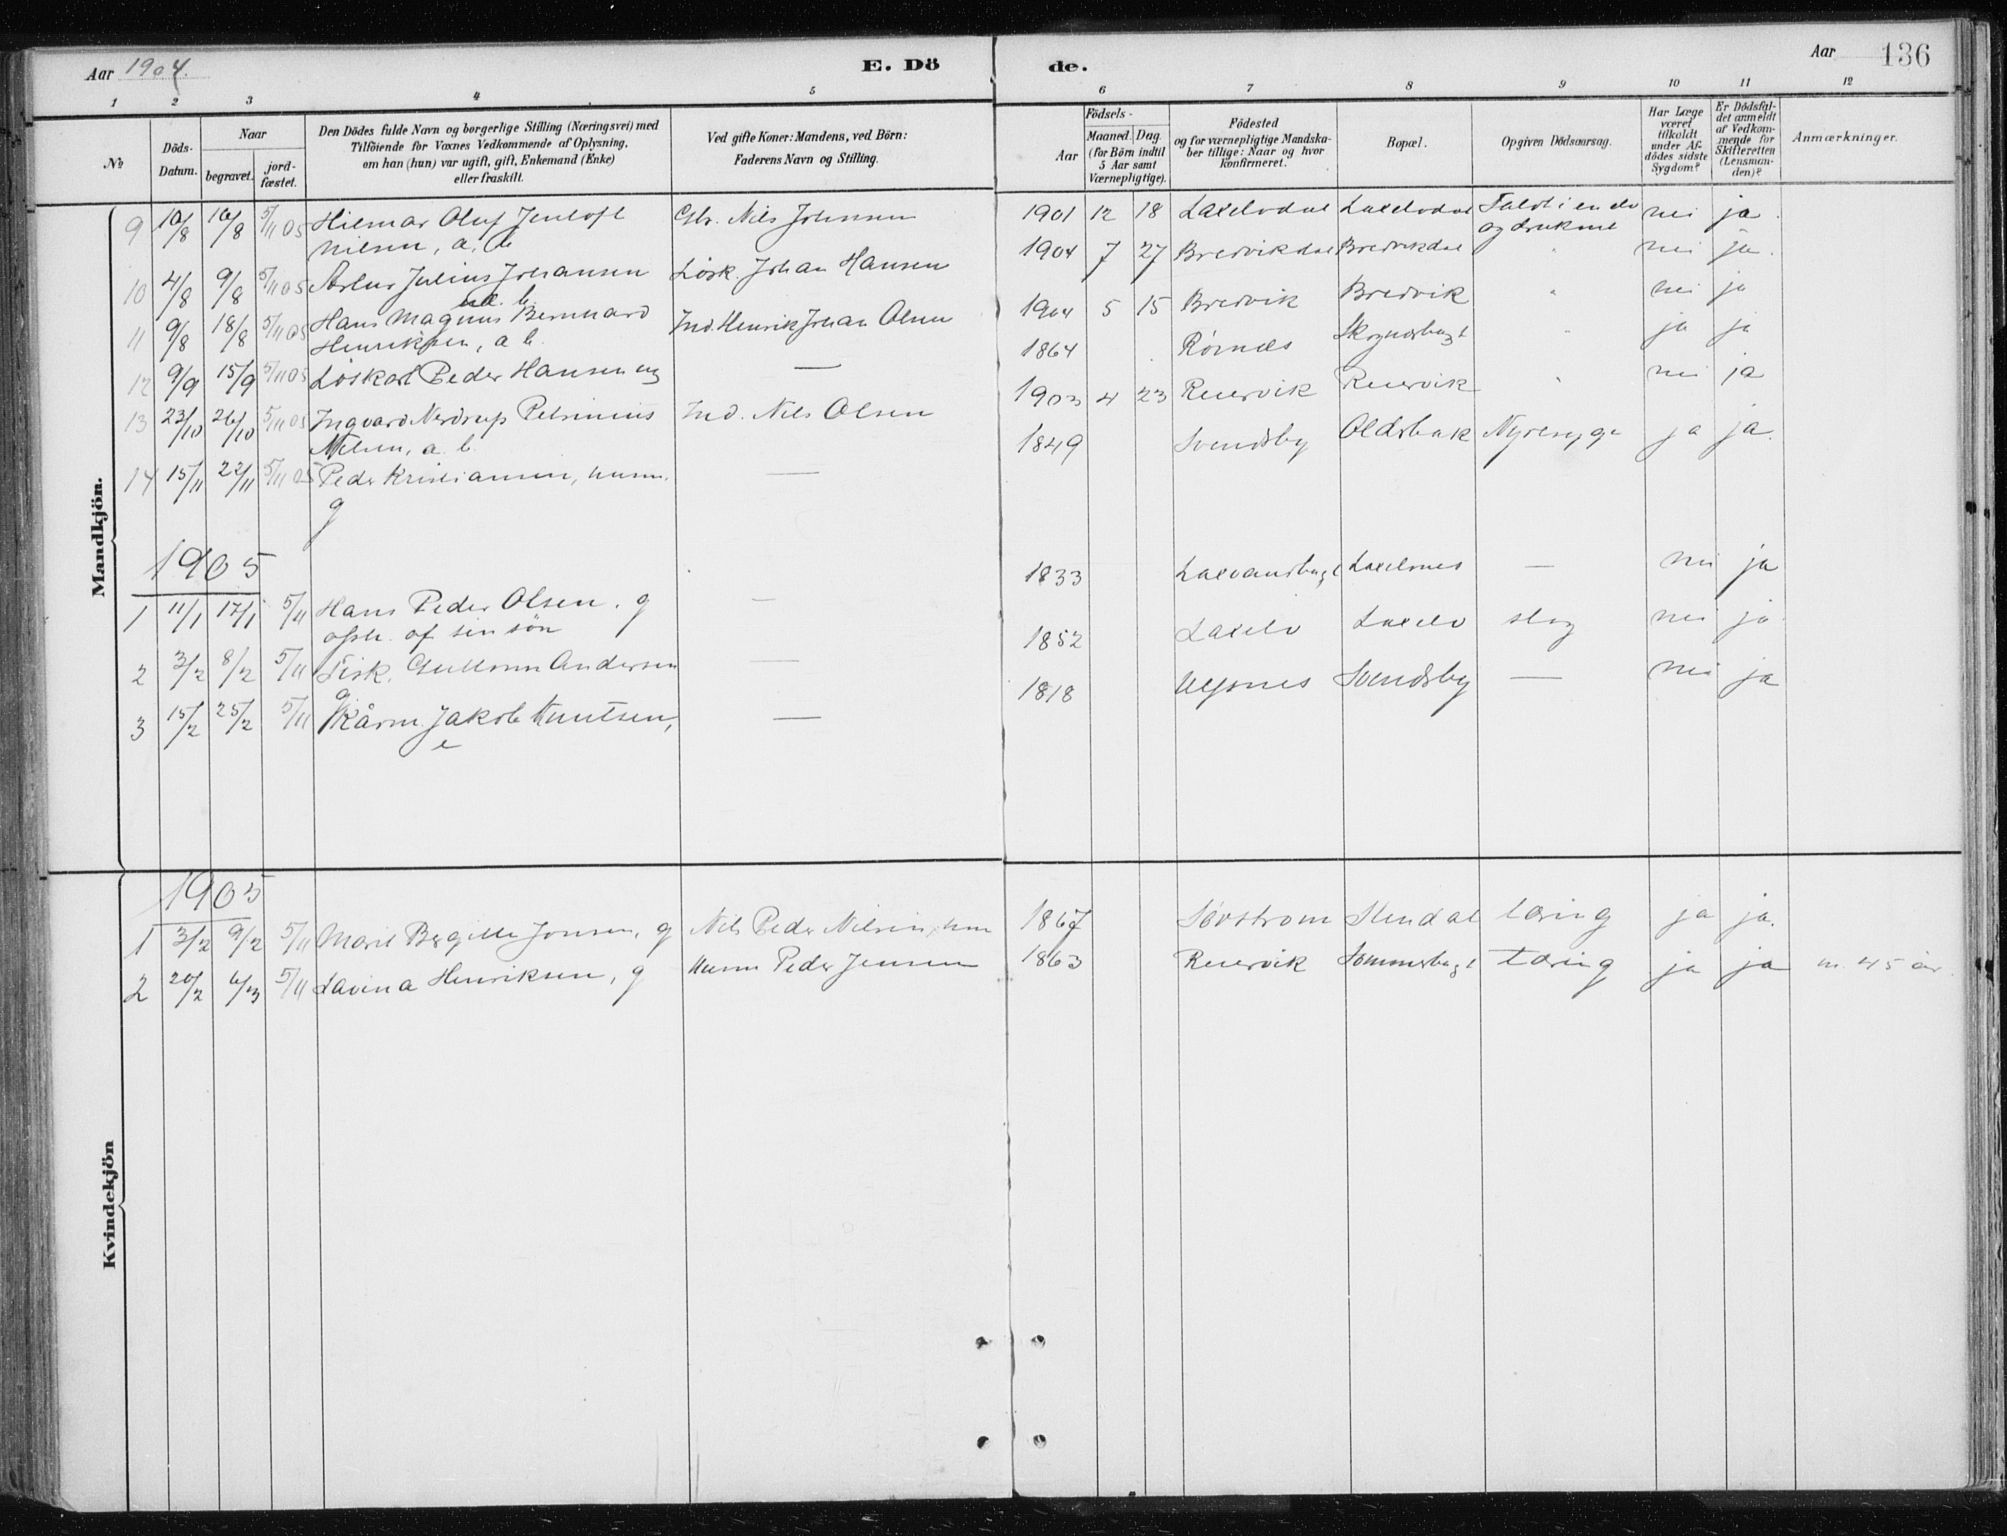 Aar 1904. E. Dö de. Aar 136
1 2 3 4 5 6 7 8 9 10 11 12
№
Döds-Datum.
Naar
begravet.
jord-fæstet.
Den Dödes fulde Navn og borgerlige Stilling (Næringsvei) med
Tilföiende for Voxnes Vedkommende af Oplysning,
om han (hun) var ugift, gift, Enkemand (Enke)
eller fraskilt.
Ved gifte Koner: Mandens, ved Börn:
Faderens Navn og Stilling.
Födsels-
Aar
Maaned. Dag.
(for Börn indtil
5 Aar samt
Værnepligtige).
Födested
og for værnepligtige Mandska-
ber tillige: Naar og hvor
konfirmeret.
Bopæl.
Opgiven Dödsaarsag.
Har Læge
været
tilkaldt
under Af-
dödes sidste
Sygdom?
Er Dödsfal-
det anmeldt
af Vedkom-
mende for
Skifteretten
(Lensman-
den)?
Anmærkninger.
Mandkjön.
9 10/8 16/8 5/11 05 Hilmar Oluf Jentoft Gbr. Nils Johnsen 1901 12 18 Laxelvdal Laxelvdal Faldt i en elv nei ja.
Nilsen, a. b. og druknet
10 4/8 9/8 5/11 05 Artur Julius Johansen Løsk. Johan Hansen 1904 7 27 Bredvikdal Bredvikdal " nei ja.
a. b.
11 9/8 18/8 5/11 05 Hans Magnus Bernhard Ind. Henrik Johan Olsen 1904 5 15 Bredvik Bredvik " nei ja
Henriksen, a b.
12 9/9 15/9 5/11 05 Løskarl Peder Hansen ug — 1864 Rørnes " ja ja
13 23/10 26/10 5/11 05 Ingvard Nerdrup Petrinius Ind. Nils Olsen 1903 4 23 Reiervik Reiervik " nei ja
Nilsen, a. b.
14 15/11 22/11 5/11 05 Peder Kristiansen, husm. — 1849 Svendsby Oldsbak Nyresyge ja ja.
g
1905
1 11/1 17/1 5/11 Hans Peder Olsen. g — 1833 Laxvandbugt Laxelvnes — nei ja
af sin søn
2 3/2 8/2 5/11 Fisk. Guttorm Andersen — 1852 Laxelv Laxelv slag nei ja
g
3 15/2 25/2 5/11 Kårm. Jakob Knutsen, — 1818 Ulfsnes Svendsby — nei ja
e
Kvindekjön
1905
1 3/2 9/2 5/11 Marit Bergitte Jonsen, g Nils Peder Nilsen, hm 1867 Sørstrøm Stendal tæring ja ja.
2 20/2 6/3 5/11 Lavina Henriksen, g Husm Peder Jensen 1863 Reiervik Sommerbugt tæring ja ja m. 45 år.